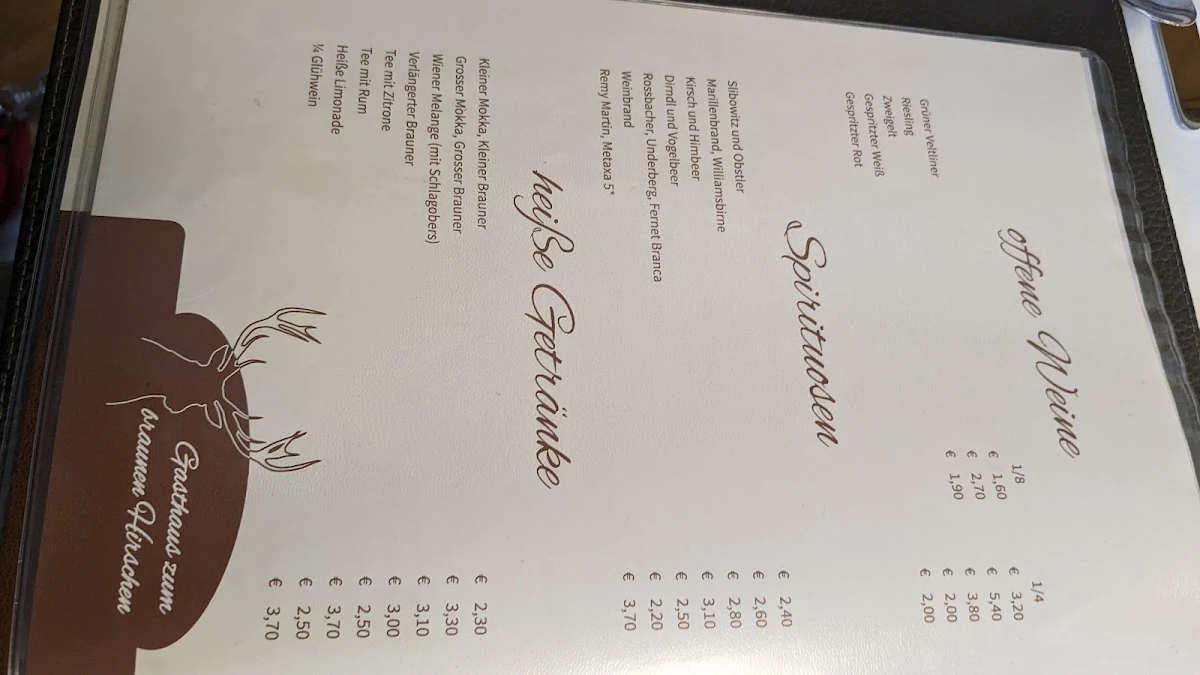 offene Weine
1/8 1/4
Grüner Veltliner € 1,60 € 3,20
Riesling € 2,70 € 5,40
Zweigelt € 1,90 € 3,80
Gespritzter Weiß € 2,00
Gespritzter Rot € 2,00
Spirituosen
Slibowitz und Obstler € 2,40
Marillenbrand, Williamsbirne € 2,60
Kirsch und Himbeer € 2,80
Dirndl und Vogelbeer € 3,10
Rossbacher, Underberg, Fernet Branca € 2,50
Weinbrand € 2,20
Remy Martin, Metaxa 5* € 3,70
heiße Getränke
Kleiner Mokka, Kleiner Brauner € 2,30
Grosser Mokka, Grosser Brauner € 3,30
Wiener Melange (mit Schlagobers) € 3,10
Verlängerter Brauner € 3,00
Tee mit Zitrone € 2,50
Tee mit Rum € 3,70
Heiße Limonade € 2,50
¼ Glühwein € 3,70
Gasthaus zum
braunen Hirschen